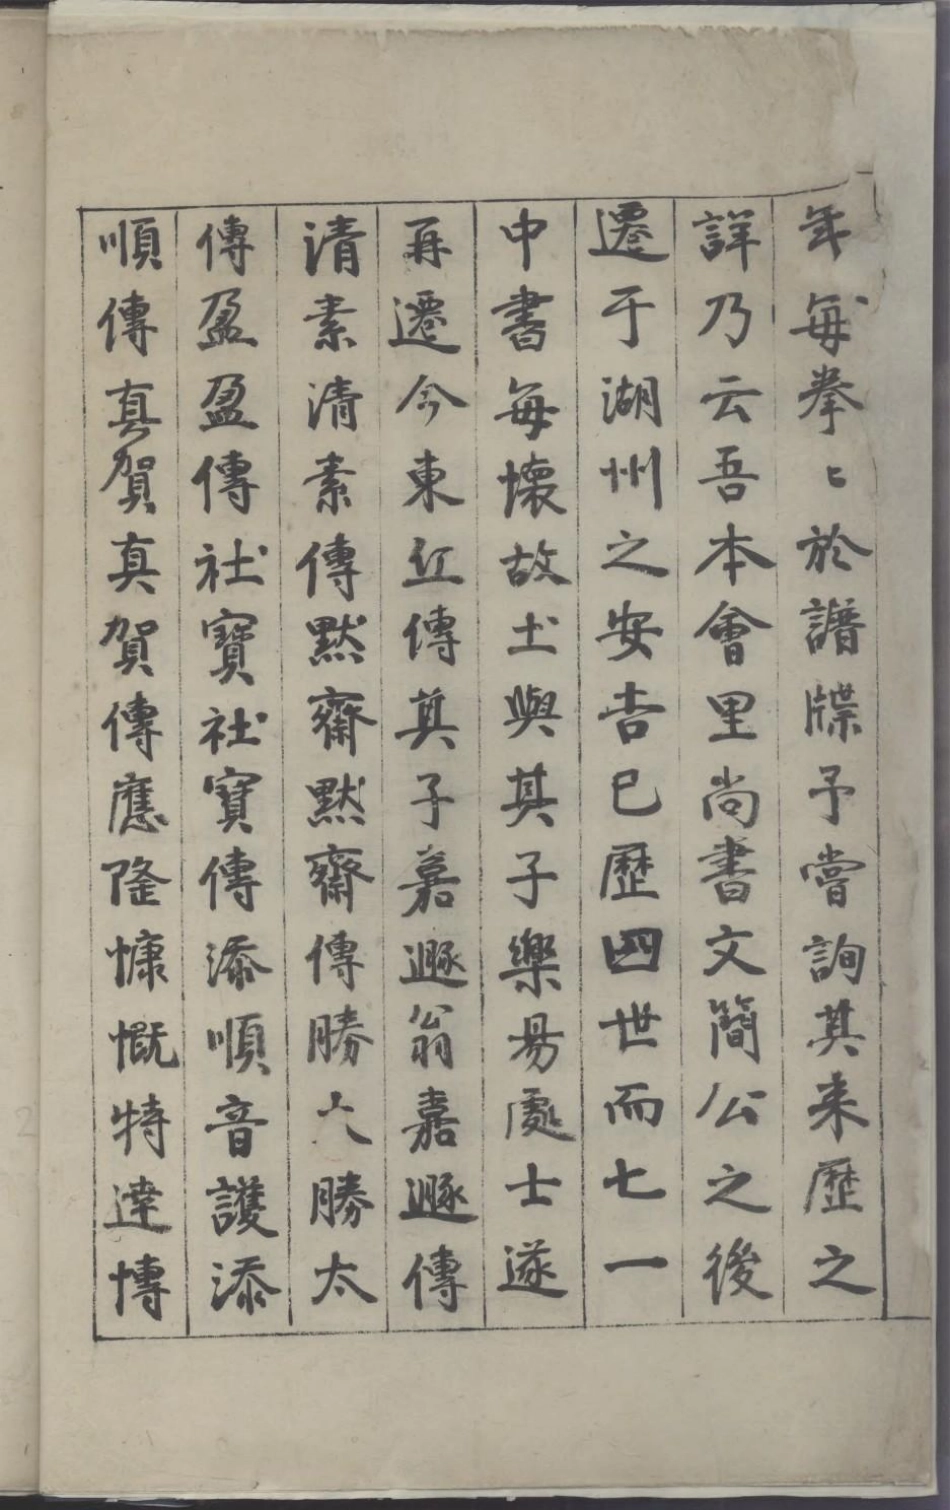 年每拳〻於譜牒予嘗詢其来歷之
詳乃云吾本會里尚書文簡公之後
遷于湖州之安吉已歷四世而七一
中書每懷故土與其子樂昜處士遂
再遷今東丘傳其子嘉遯翁嘉遯傳
清素清素傳默齋默齋傳勝大勝太
傳盈盈傳社寶社寶傳添順音護添
順傳真賀真賀傳應隆慷慨特達博